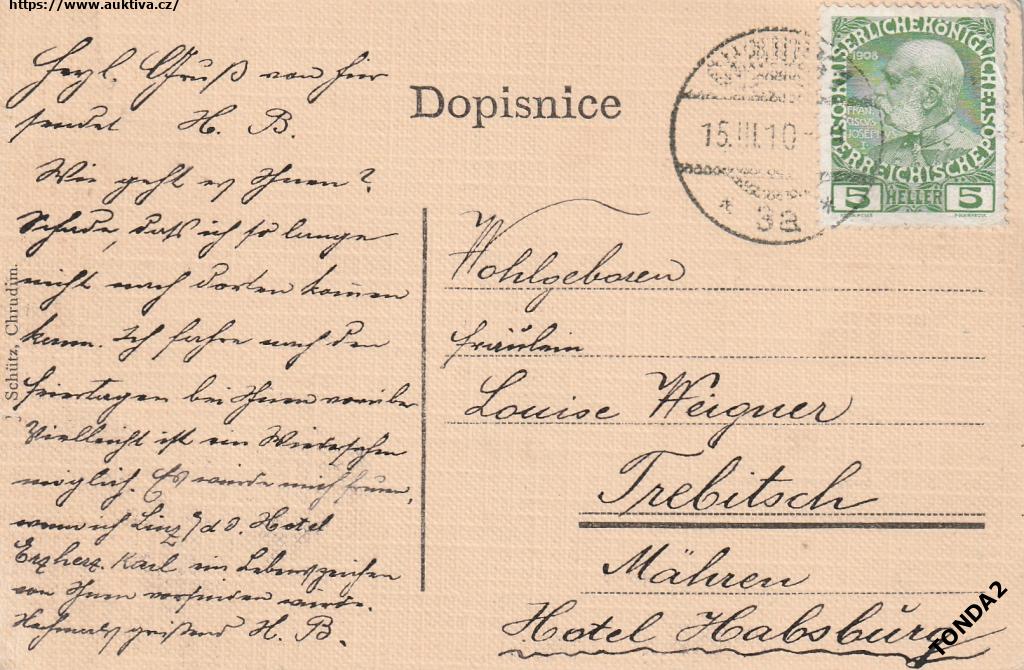 https://www.auktiva.cz/
Herzl. Gruß von hier
sendet H. B.
Wie geht es Ihnen?
Schade, daß ich so lange
nicht nach dorten kommen
kann. Ich fahre nach den
Feiertagen bei Ihnen vorüber
Vielleicht ist ein Wiedersehen
möglich. Es würde mich freuen,
wenn ich Linz a/d D. Hotel
Erzherz. Karl ein Lebenszeichen
von Ihnen vorfinden würde.
Nochmals grüßend H. B.
Schütz, Chrudim.
Dopisnice
15.III.10
* 3a *
KAISERLICHE KÖNIGLICHE ÖSTERREICHISCHE POST
1908
FRAN
CISCVS
JOSEPHVS
I.
5 HELLER 5
Wohlgeboren
Fräulein
Louise Weigner
Trebitsch
Mähren
Hotel Habsburg
TONDA2